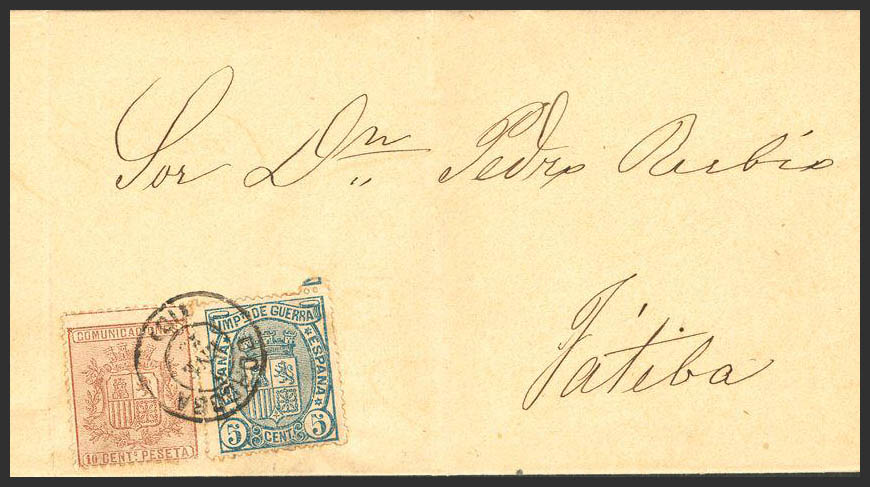 Sor Dn Pedro Rubio
Játiba
COMUNICACIONES
10 CENTs PESETA
IMPTO DE GUERRA
ESPAÑA
ESPAÑA
5 CENTs 5